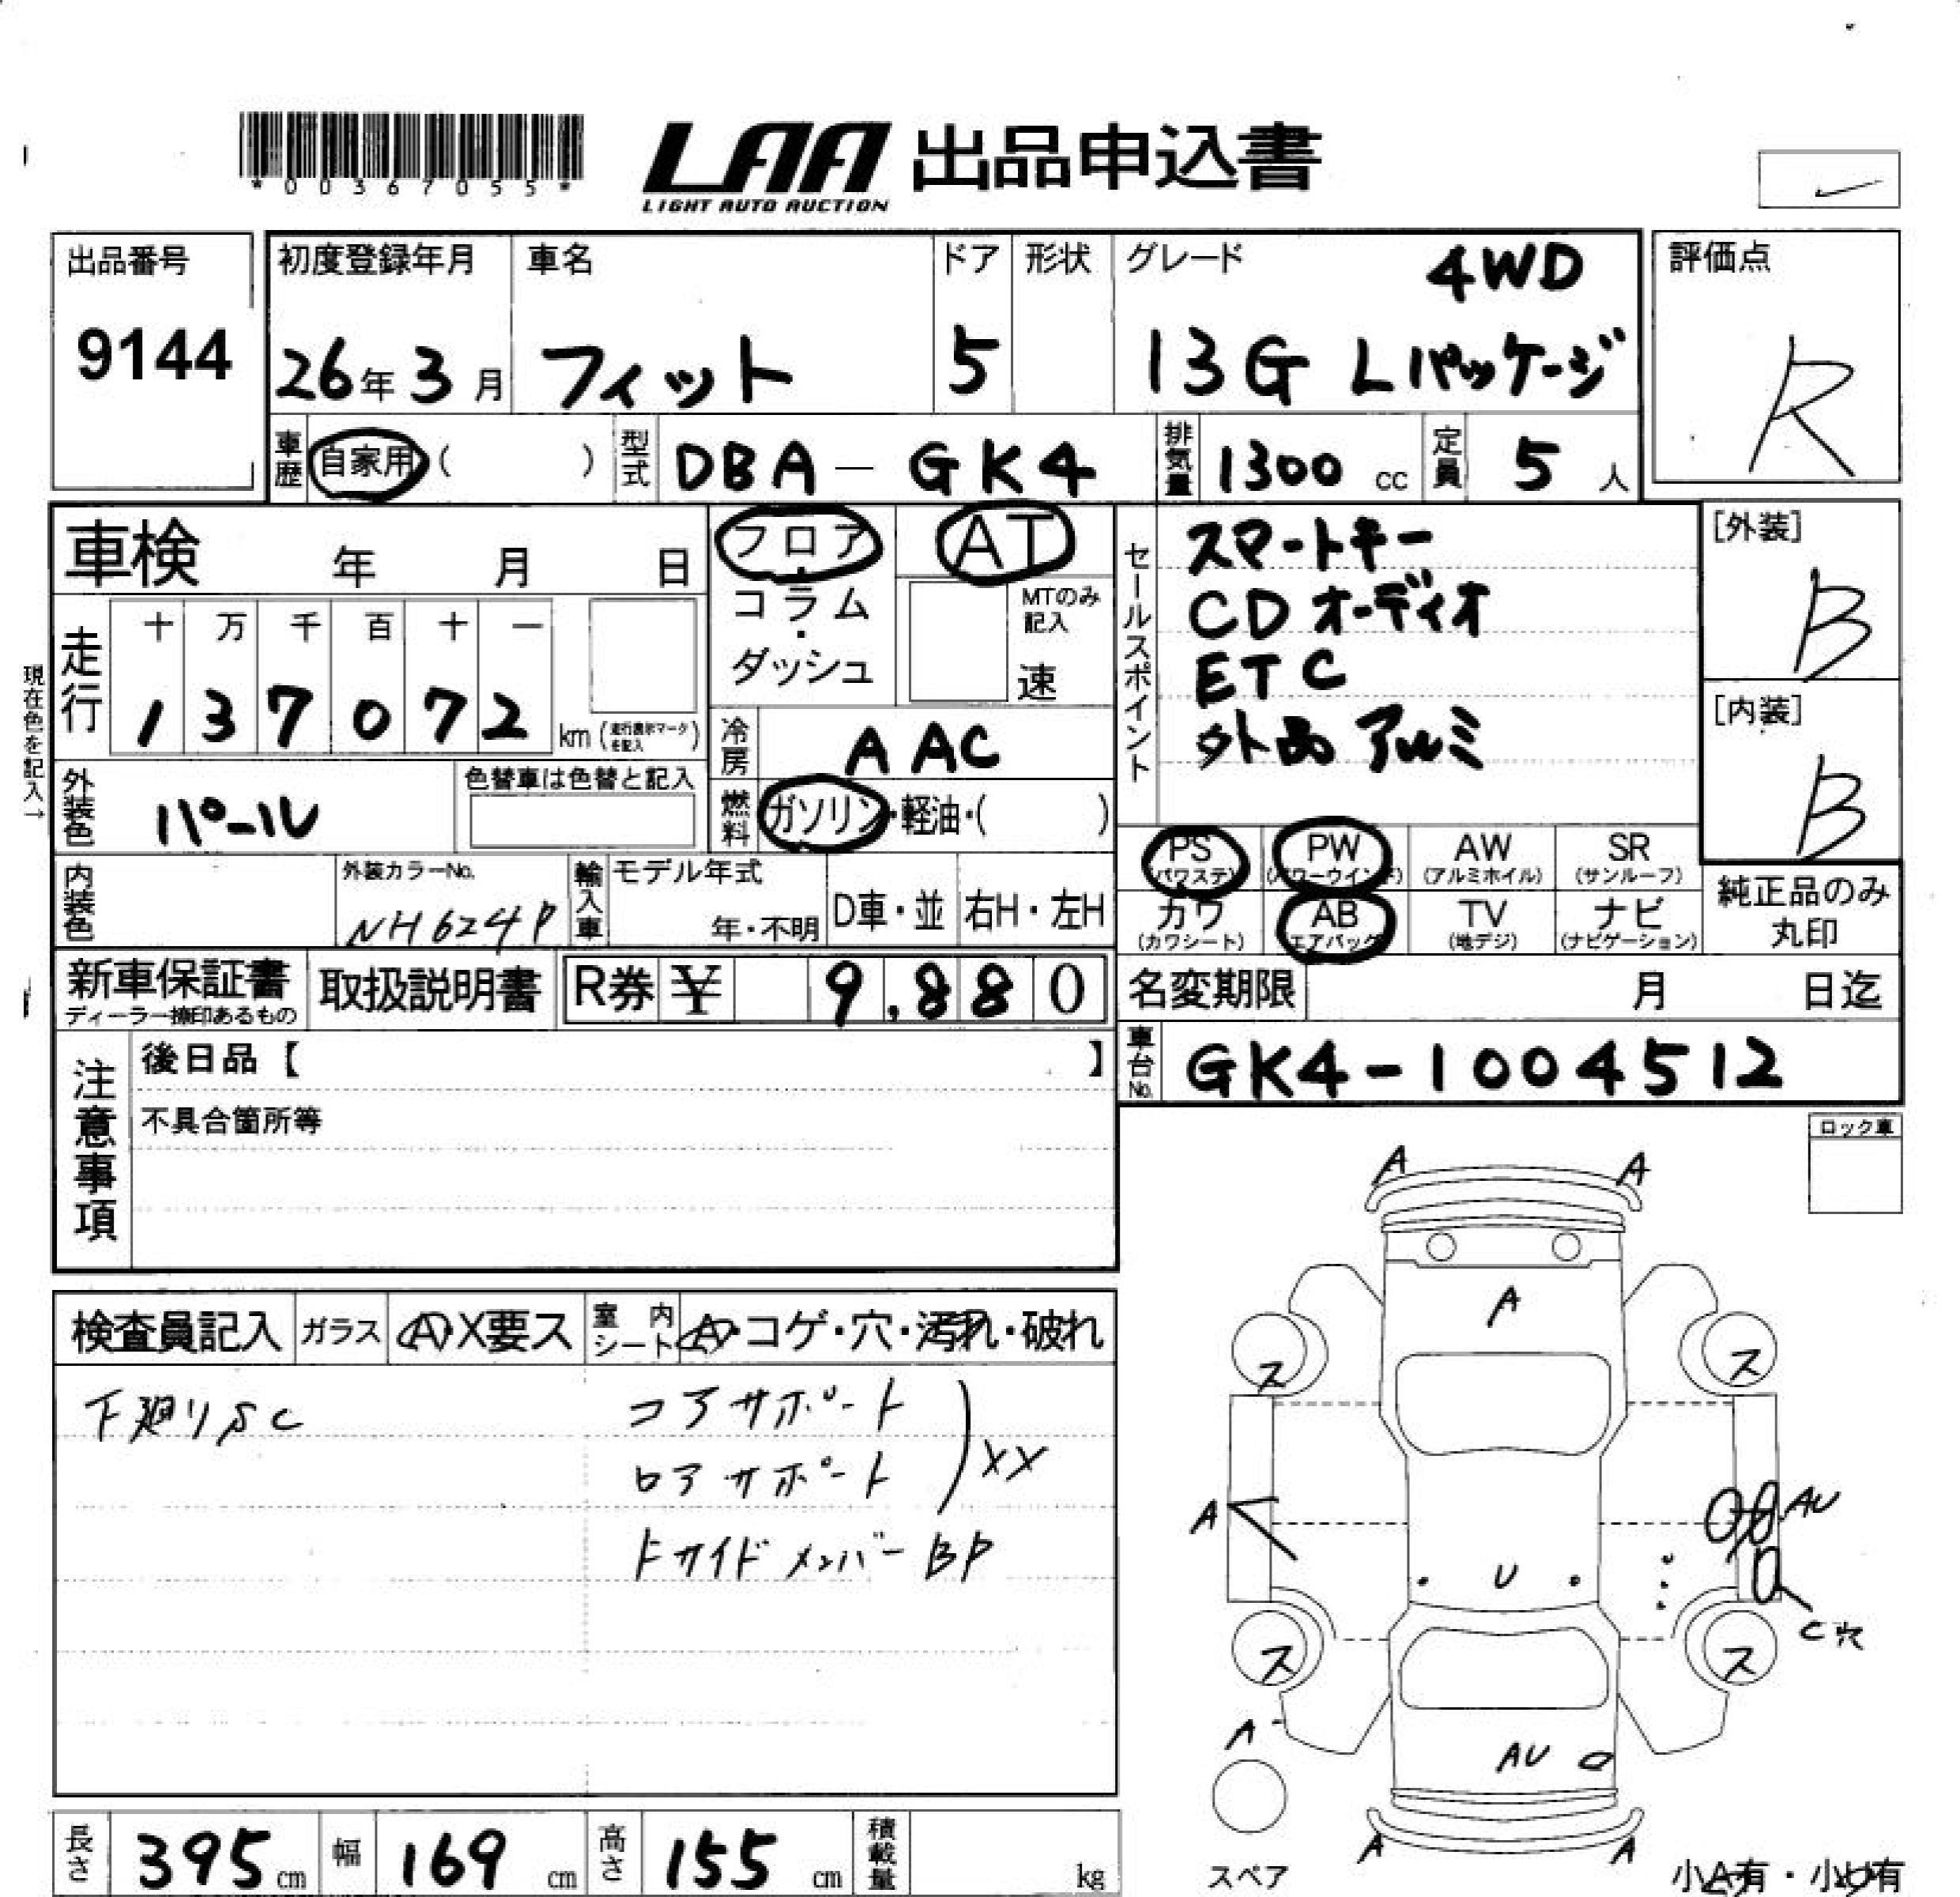 *00367055*
LAA 出品申込書
LIGHT AUTO AUCTION
出品番号
9144
初度登録年月
26年3月
車名
フィット
ドア
5
形状
グレード
4WD
13G Lパッケージ
評価点
R
車歴
自家用 ( )
型式
DBA-GK4
排気量
1300 cc
定員
5 人
車検 年 月 日
フロア・
コラム・
ダッシュ
AT
MTのみ
記入
速
セールスポイント
スマートキー
CDオーディオ
ETC
外品アルミ
[外装]
B
[内装]
B
現在色を記入→
走行
十 万 千 百 十 一
1 3 7 0 7 2
km (走行表示マークを記入)
冷房
AAC
外装色
パール
色替車は色替と記入
燃料
ガソリン・軽油・( )
PS
(パワステ)
PW
(パワーウインド)
AW
(アルミホイル)
SR
(サンルーフ)
カワ
(カワシート)
AB
(エアバック)
TV
(地デジ)
ナビ
(ナビゲーション)
純正品のみ
丸印
内装色
外装カラーNo.
NH624P
輸入車
モデル年式
年・不明
D車・並
右H・左H
新車保証書
ディーラー捺印あるもの
取扱説明書
R券 ¥ 9,880
名変期限 月 日迄
車台No.
GK4-1004512
注意事項
後日品【 】
不具合箇所等
ロック車
検査員記入
ガラス
A・X要ス
室内シート
A・コゲ・穴・汚れ・破れ
下廻りSC
コアサポート
ロアサポート
XX
トサイドメンバーBP
A
A
A
ス
ス
A
AU
U
C穴
ス
ス
A
AU
A
A
スペア
小A有・小U有
長さ
395 cm
幅
169 cm
高さ
155 cm
積載量
kg